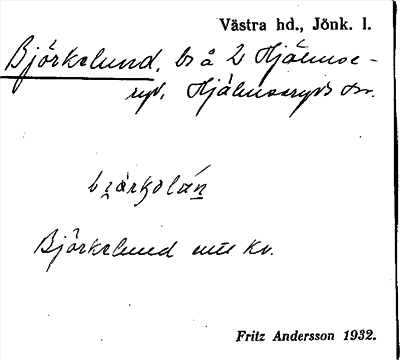 Västra hd., Jönk. l.
Björkslund, bs å 2 Hjälmse-
ryd, Hjälmseryds sn.
Björkslund
Fritz Andersson 1932.